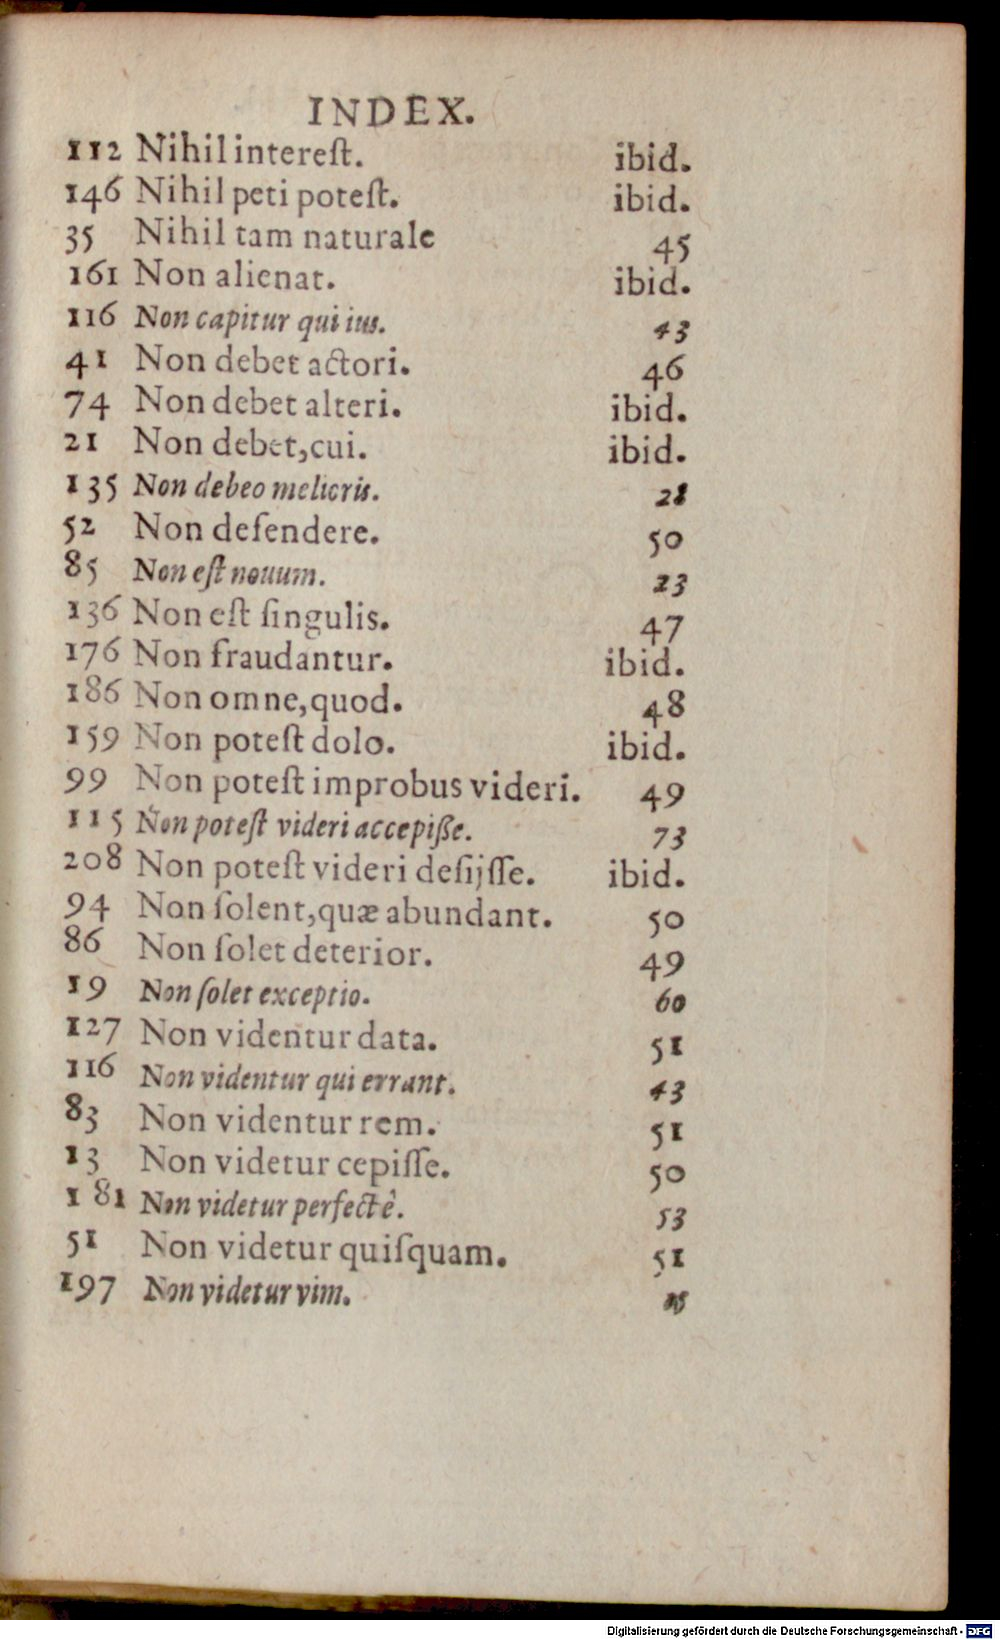 INDEX.
112 Nihil intereſt. ibid.
146 Nihil peti poteſt. ibid.
35 Nihil tam naturale 45
161 Non alienat. ibid.
116 Non capitur qui ius. 43
41 Non debet actori. 46
74 Non debet alteri. ibid.
21 Non debet,cui. ibid.
135 Non debeo melioris. 28
52 Non defendere. 50
85 Non eſt nouum. 23
136 Non eſt ſingulis. 47
176 Non fraudantur. ibid.
186 Non omne,quod. 48
159 Non poteſt dolo. ibid.
99 Non poteſt improbus videri. 49
115 Non poteſt videri accepiſſe. 73
208 Non poteſt videri deſijſſe. ibid.
94 Non ſolent,quæ abundant. 50
86 Non ſolet deterior. 49
19 Non ſolet exceptio. 60
127 Non videntur data. 51
116 Non videntur qui errant. 43
83 Non videntur rem. 51
13 Non videtur cepiſſe. 50
181 Non videtur perfectè. 53
51 Non videtur quiſquam. 51
197 Non videtur vim.
Digitalisierung gefördert durch die Deutsche Forschungsgemeinschaft - DFG